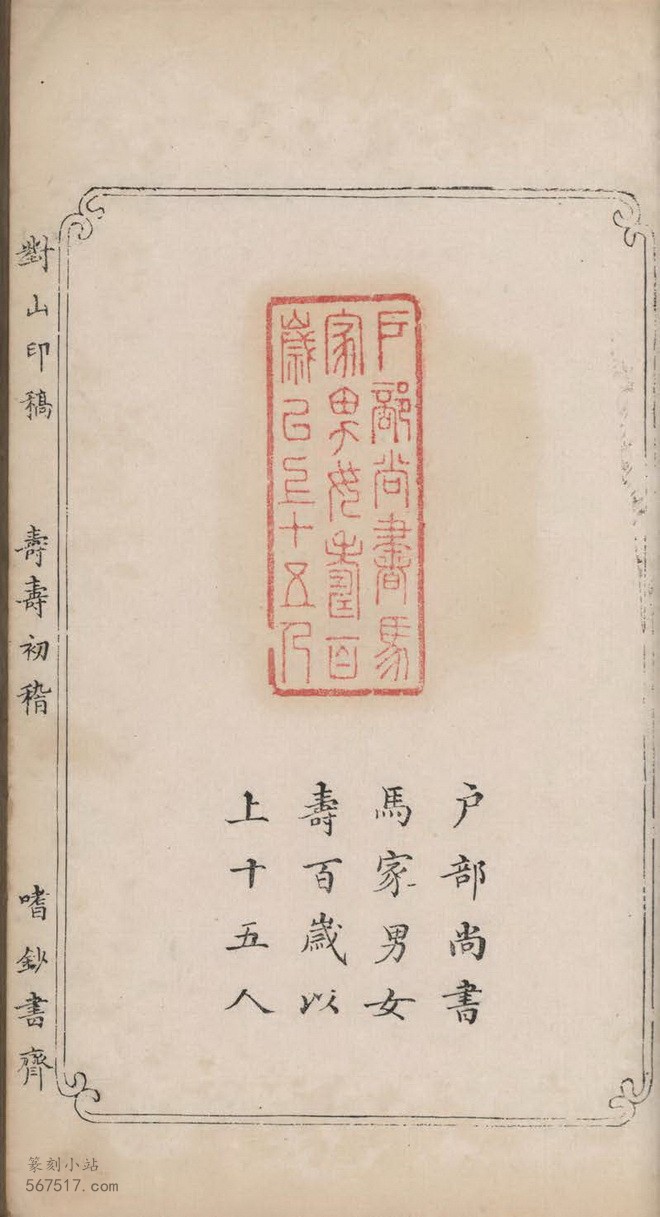 户部尚書馬
家男女壽百
歲以上十五人
户部尚書
馬家男女
壽百歲以
上十五人
對山印稿 壽壽初稽 嗜鈔書齊
篆刻小站
567517.com